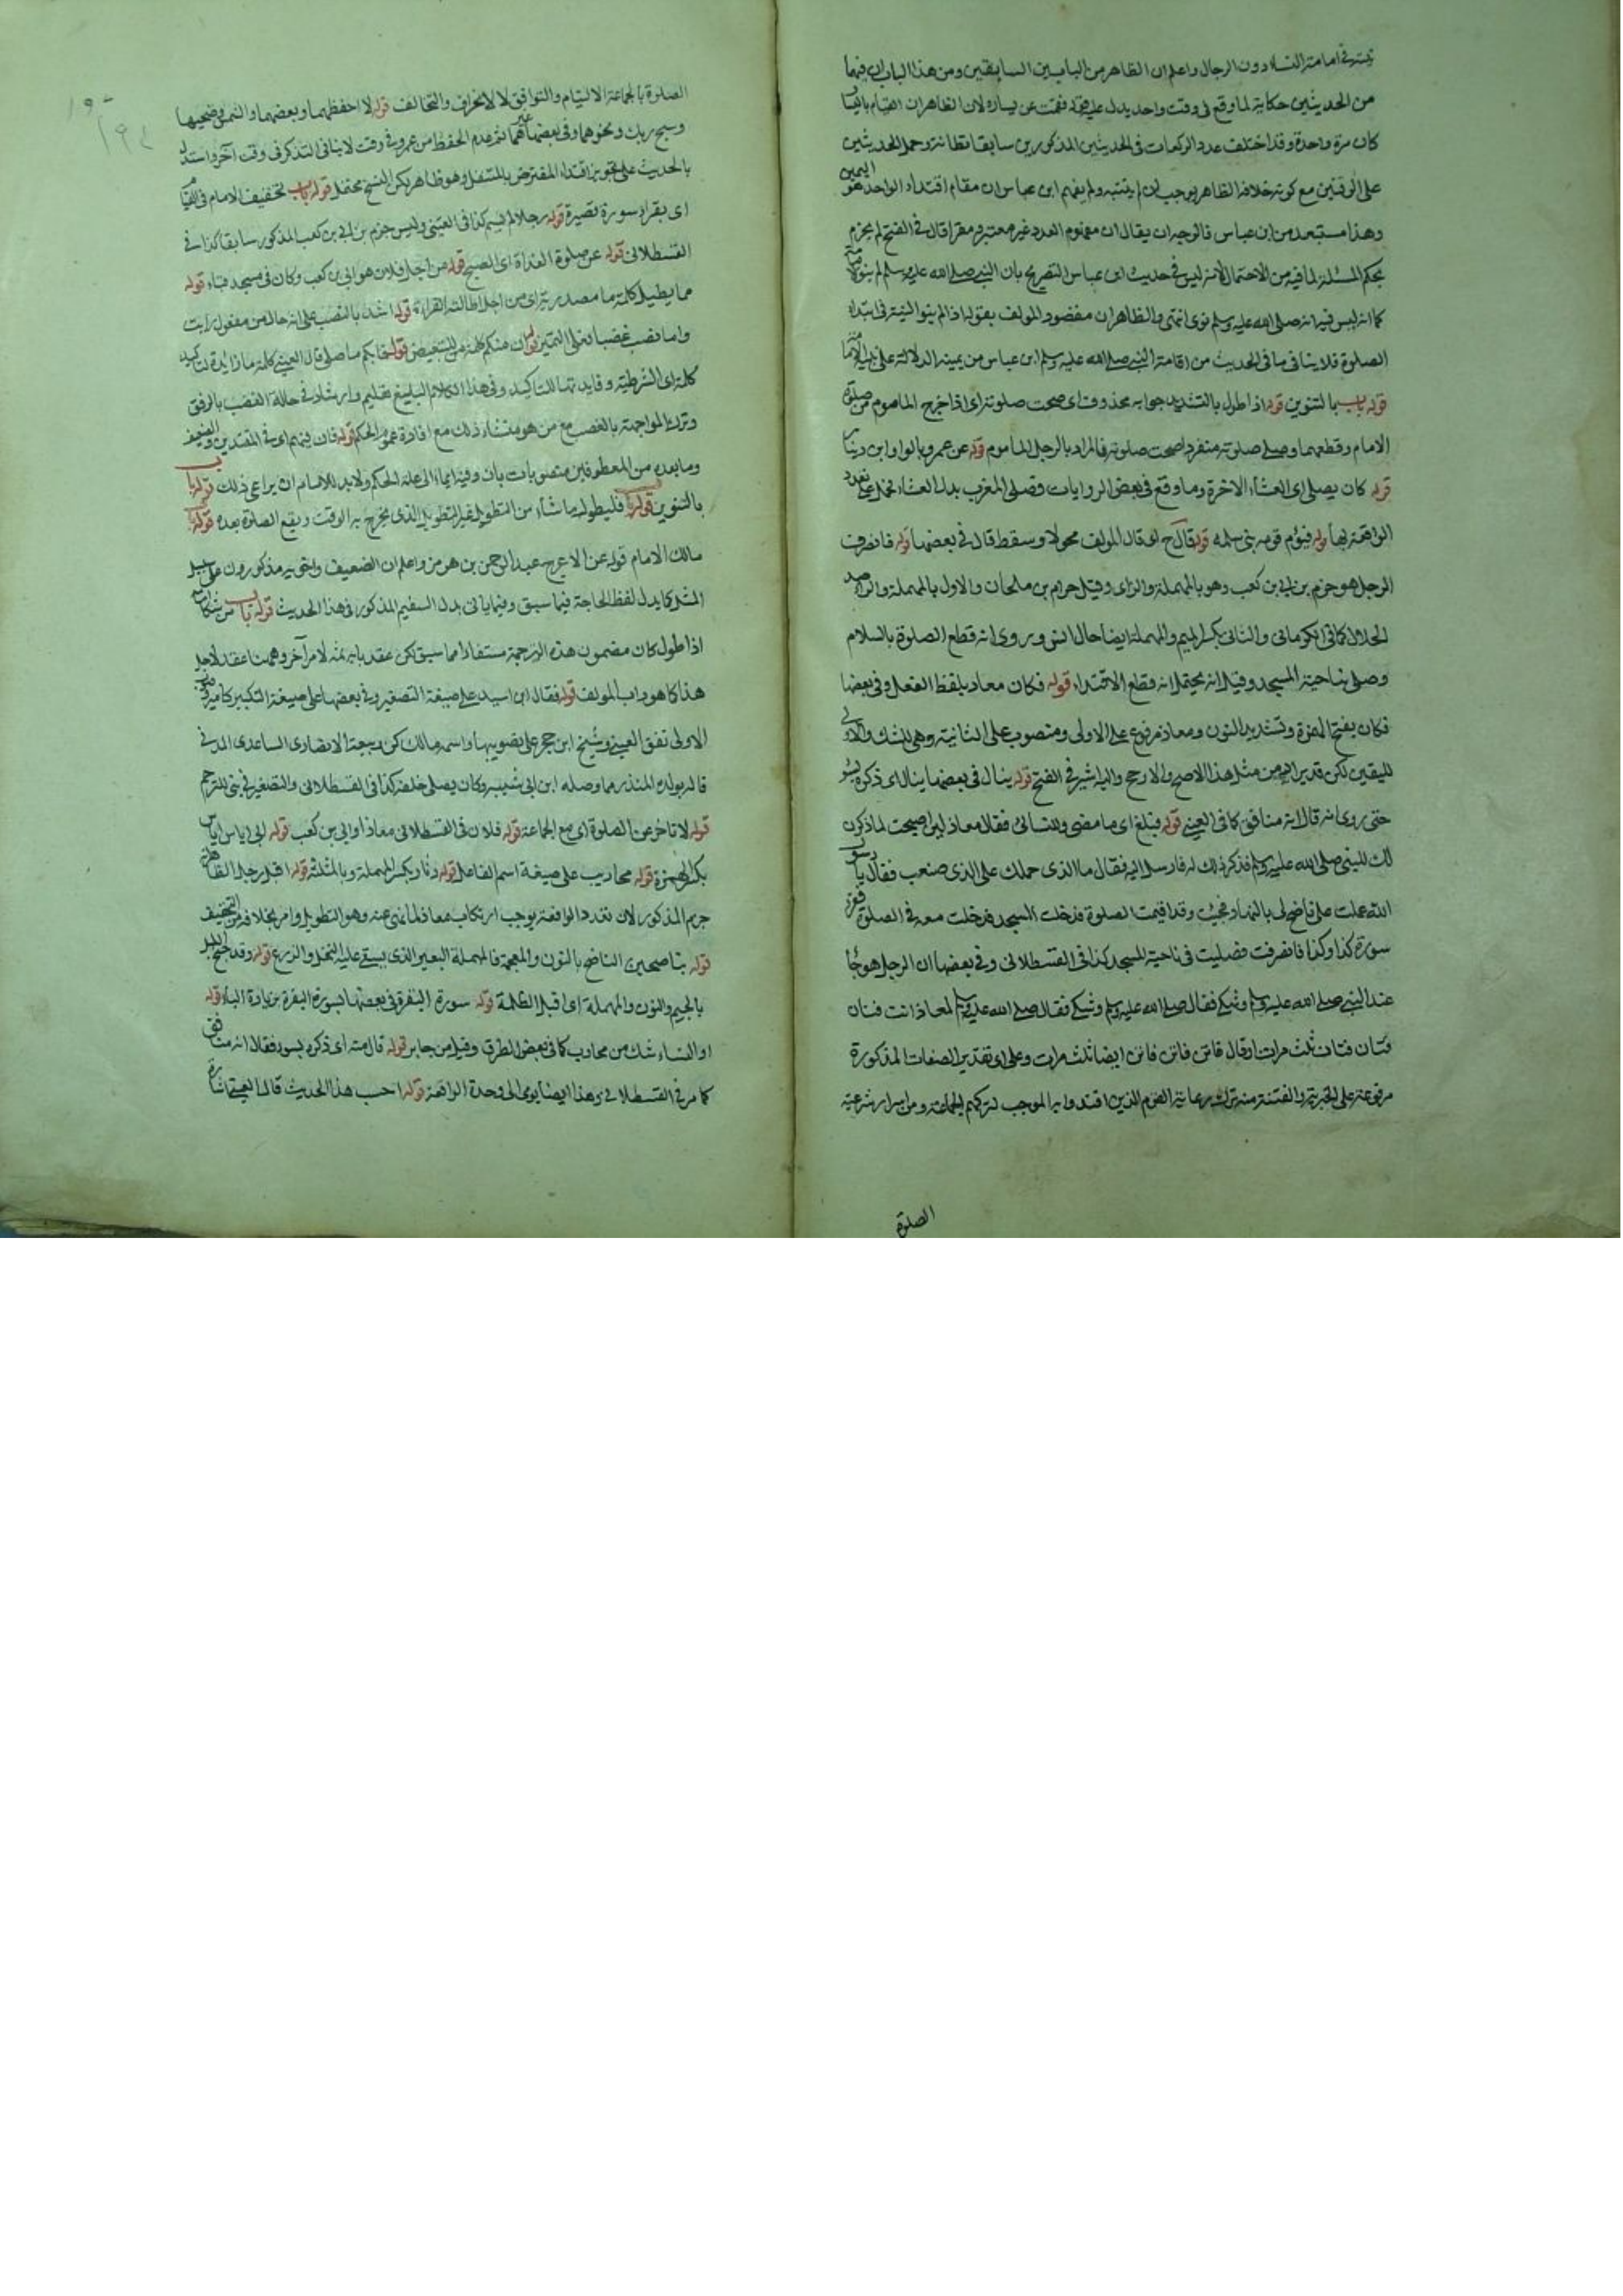 من الحديثين حكاية لما وقع في وقت واحد يدل عليه فقمت عن يساره لان الظاهر ان القيام باليسار
كان مرة واحدة وقد اختلف عدد الركعات في الحديثين المذكورين سابقا وحمل الحديثين
على الوقتين مع كونه خلاف الظاهر يوجب ان لم ينتبه ولم يفهم ابن عباس ان مقام اقتداء الواحد هو اليمين
وهذا مستبعد من ابن عباس فالوجه ان يقال ان مفهوم العدد غير معتبر قال في الفتح لم يجزم
بحكم المسئلة لما فيه من الاحتمال لانه ليس في حديث ابن عباس التصريح بان النبي صلى الله عليه وسلم لم ينو
كما انه ليس فيه انه صلى الله عليه وسلم نوى انتهى والظاهر ان مقصود المولف بقوله اذا لم ينو النية في ابتداء
الصلوة فلا ينافى ما في الحديث من اقامة النبي صلى الله عليه وسلم ابن عباس من يمينه الدلالة على
قوله باب بالتنوين قوله اذا طول بالتشديد جوابه محذوف اى صحت صلوته اى اذا خرج الماموم من صلوة
الامام وقطعها وصلى صلوته منفردا صحت صلوته فالمراد بالرجل الماموم قوله عن عمرو بالواو ابن دينار
قوله كان يصلى اى العشاء الاخرة وما وقع في بعض الروايات فصلى المغرب بدل العشاء تحمل على تعدد
الواقعة قوله فيؤم قومه بنى سلمه قوله قال ح اى قال المولف محولا وسقط قال في بعضها قوله فانصرف
الرجل هو حزم بن ابى بن كعب وهو بالمهملة والزاى وقيل حرام بن ملحان والاول بالمهملة والراء ضد
الحلال كما في الكرمانى والثانى بكسر الميم والمهملة ايضا خال انس وروى انه قطع الصلوة بالسلام
وصلى بناحية المسجد وقيل انه يحتمل انه قطع الاقتداء قوله فكان معاذ بلفظ الفعل وفي بعضها
فكان بفتح الهمزة وتشديد النون ومعاذ مرفوع على الاولى ومنصوب على الثانية وهى للشك والاولى
لليقين لكن قد يراد من مثل هذا الاصح والارجح واليه اشير في الفتح قوله ينال في بعضها ينال اى ذكره بسوء
حتى روى انه قال انه منافق كما في العينى قوله فبلغ اى ما مضى وللنسائى فقال معاذ لين اصبحت لاذكرن
ذلك للنبي صلى الله عليه وسلم فذكر ذلك له فارسل اليه فقال ما الذى حملك على الذى صنعت فقال يا رسول
الله عملت على ناضح لى بالنهار فجئت وقد اقيمت الصلوة فدخلت المسجد فدخلت معه في الصلوة فقرأ
سورة كذا وكذا فانصرفت فصليت في ناحية المسجد كذا في القسطلانى وفي بعضها ان الرجل هو جاء
عند النبي صلى الله عليه وسلم وشكى فقال صلى الله عليه وسلم لمعاذ انت فتان
فتان فتان ثلث مرات او قال فاتن فاتن فاتن ايضا ثلث مرات وعلى اى تقدير الصفات المذكورة
مرفوعة على الخبرية والفتنة منه ترك رعاية القوم الذين اقتدوا به الموجب لتركهم الجماعة ومن اسرار شرعية
الصلوة
الصلوة بالجماعة الالتيام والتوافق لا الانحراف والتخالف قوله لا احفظهما وبعضهما والشمس وضحيها
وسبح ربك ونحوهما وفي بعضها غيرهما ثم عدم الحفظ من عمرو في وقت لا ينافى التذكر في وقت آخر واستدل
بالحديث على تجويز اقتداء المفترض بالمتنفل وهو ظاهر لكن النسخ محتمل قوله باب تخفيف الامام في القيام
اى بقراءة سورة قصيرة قوله رجلا لم يسم كذا في العينى وليس حزم بن ابى بن كعب المذكور سابقا كذا في
القسطلانى قوله عن صلوة الغداة اى الصبح قوله من اجل فلان هو ابى بن كعب وكان في مسجد قباء قوله
مما يطيل كلمة ما مصدرية اى من اجل اطالته القراءة قوله اشد بالنصب على انه حال من مفعول رايت
واما نصب غضبا فعلى التميز قوله ان منكم كلمة من للتبعيض قوله فايكم ما صلى قال العينى كلمة ما زائدة لتاكيد
كلمة اى الشرطية وفايدتها التاكيد وفي هذا الكلام البليغ تعليم وارشاد في حالة الغضب بالرفق
وترك المواجهة بالغضب مع من هو منشاء ذلك مع افادة عموم الحكم قوله فان فيهم اى في المقتدين والضعيف
وما بعده من المعطوفين منصوبات بان وفيه ايماء الى علة الحكم ولا بد للامام ان يراعى ذلك قوله باب
بالتنوين قوله فليطول ما شاء من التطويل غير التطويل الذى يخرج به الوقت ويقع الصلوة بعده قوله
مالك الامام قوله عن الاعرج عبد الرحمن بن هرمز واعلم ان الضعيف واخويه مذكورون على سبيل
المثل كما يدل لفظ الحاجة فيما سبق وفيما ياتى بدل السقيم المذكور في هذا الحديث قوله باب من شكا امامه
اذا طول كان مضمون هذه الترجمة مستفادا مما سبق لكن عقد بابه ثمه لامر آخر وههنا عقد لاجل
هذا كما هو داب المولف قوله فقال ابن اسيد على صيغة التصغير وفي بعضها على صيغة التكبير كامير وصوب
الاولى تفق العينى وشيخ ابن حجر على تصويبها واسمه مالك بن ربيعة الانصارى الساعدى المدنى
قاله لولده المنذر مما وصله ابن ابى شيبه وكان يصلى خلفه كذا في القسطلانى والتصغير في بنى للترحم
قوله لا تاخر عن الصلوة اى مع الجماعة قوله فلان في القسطلانى معاذ او ابى بن كعب قوله ابى اياس اياس
بكسر الهمزة قوله محارب على صيغة اسم الفاعل قوله دثار بكسر المهملة وبالمثلثة قوله اقبل رجل الظاهر انه
حزم المذكور لان تعدد الواقعة يوجب ارتكاب معاذ لما نهى عنه وهو التطويل وامر بخلافه من التخفيف
قوله بناضحين الناضح بالنون والمعجمة فالمهملة البعير الذى يسقى عليه النخل والزرع قوله وقد جنح الليل
بالجيم والنون والمهملة اى اقبل الظلمة قوله سورة البقرة في بعضها بسورة البقرة بزيادة الباء قوله
او النساء شك من محارب كما في بعض الطرق وقيل من جابر قوله نال منه اى ذكره بسوء فقال انه منافق
كما مر في القسطلانى وهذا ايضا يومى الى وحدة الواقعة قوله احسب هذا الحديث قال العينى